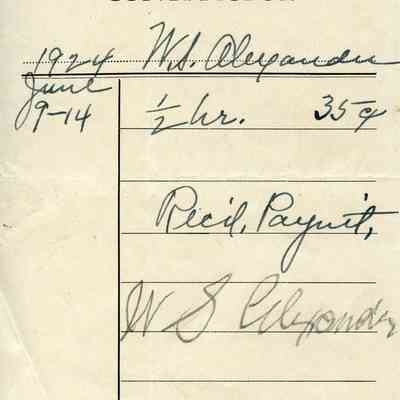 1924 W.S. Alexander
June
9-14 ½ hr. 35¢
Rec'd, Paym't,
W S Alexander